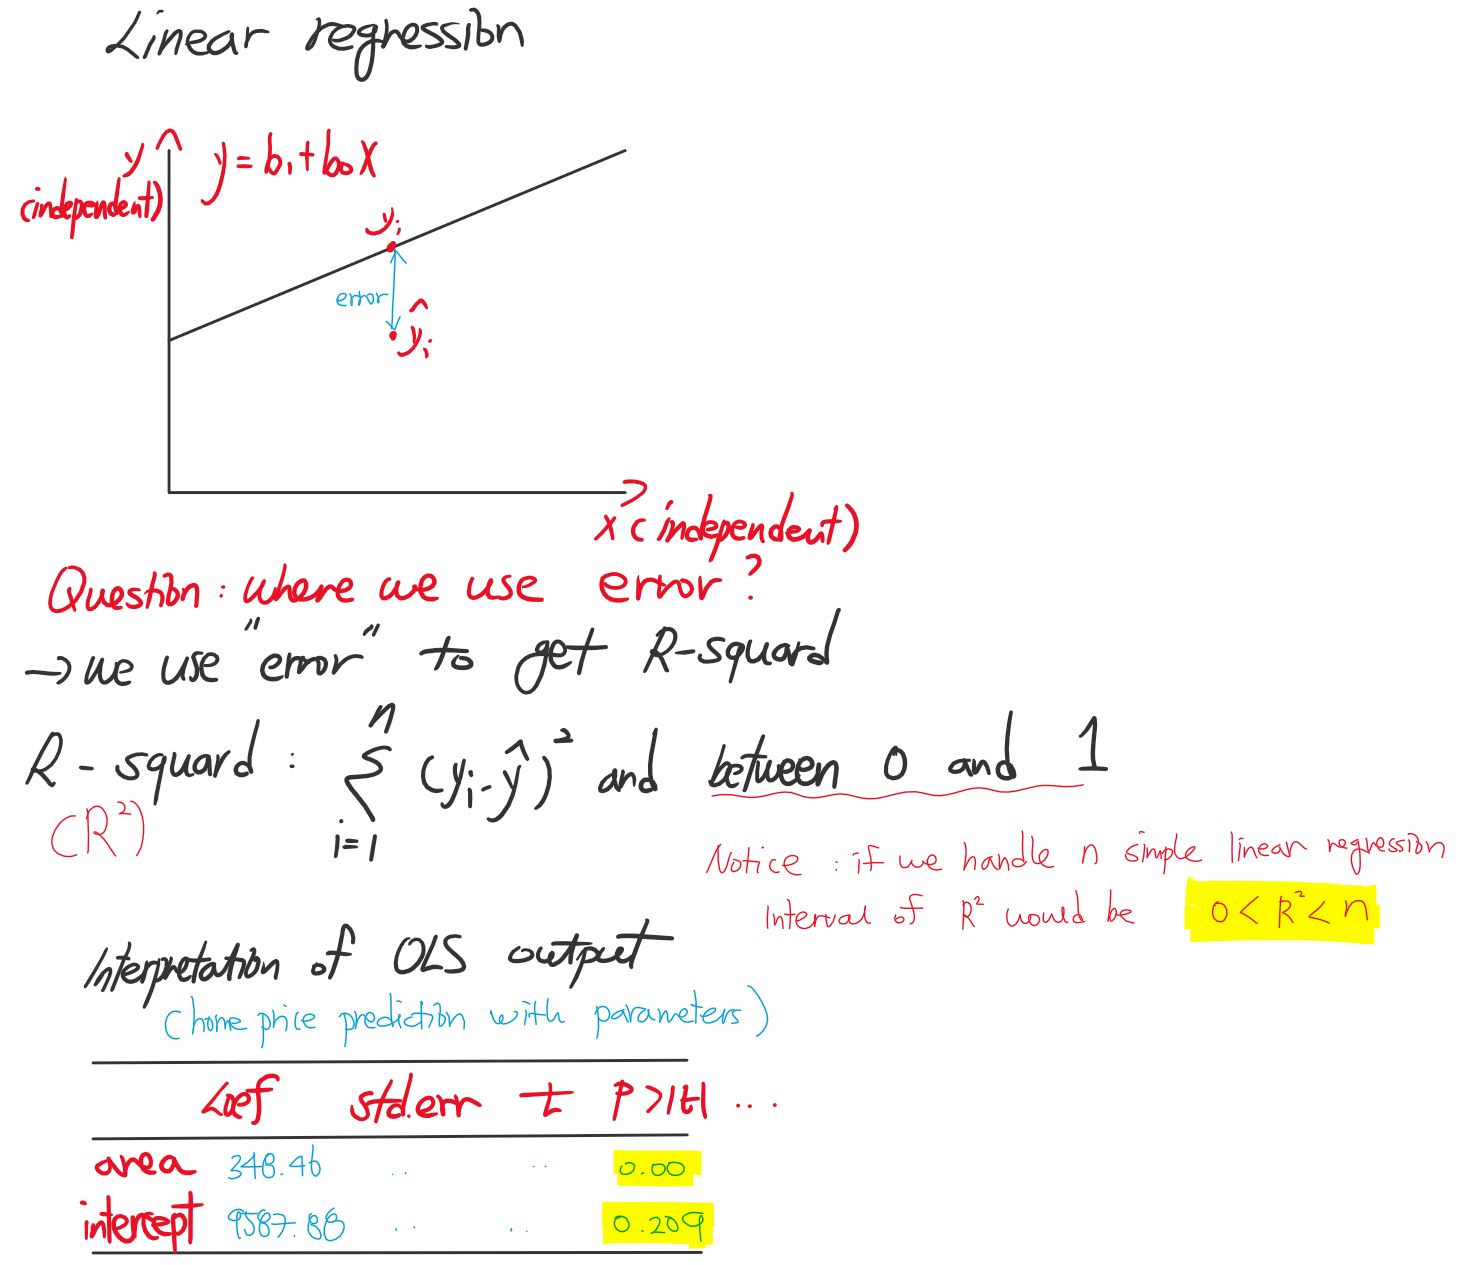 Linear regression
y
(independent)
y = b₁ + b₀X
yᵢ
error
ŷᵢ
x (independent)
Question : where we use error?
→ we use "error" to get R-squard
R - squard : ∑ⁿᵢ₌₁ (yᵢ - ŷ)² and between 0 and 1
(R²)
Notice : if we handle n simple linear regression
Interval of R² would be 0 < R² < n
Interpretation of OLS output
(home price prediction with parameters)
Coef std.err t P>|t| ...
area 348.46 .. .. 0.00
intercept 9587.88 .. .. 0.209